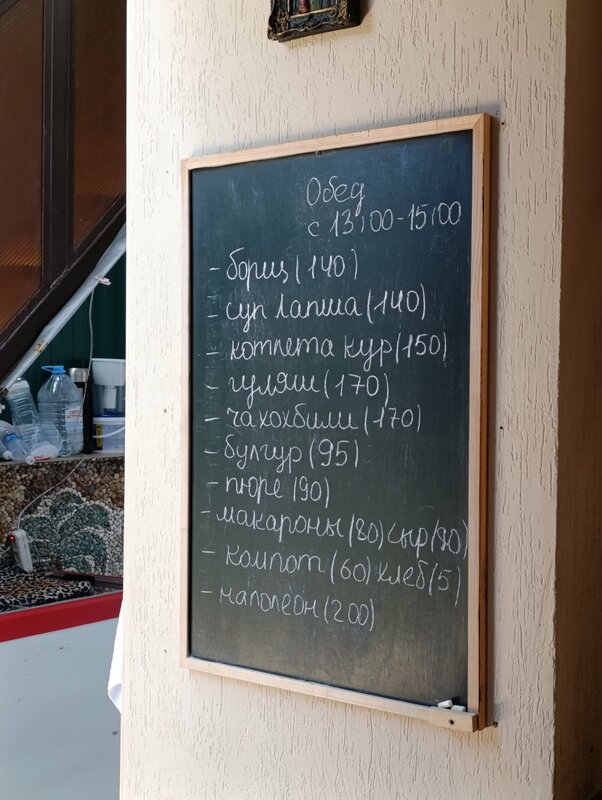 Обед
с 13:00-15:00
- борщ (140)
- суп лапша (140)
- котлета кур (150)
- гуляш (170)
- чахохбили (170)
- булгур (95)
- пюре (90)
- макароны (80) сыр (90)
- компот (60) хлеб (5)
- наполеон (200)